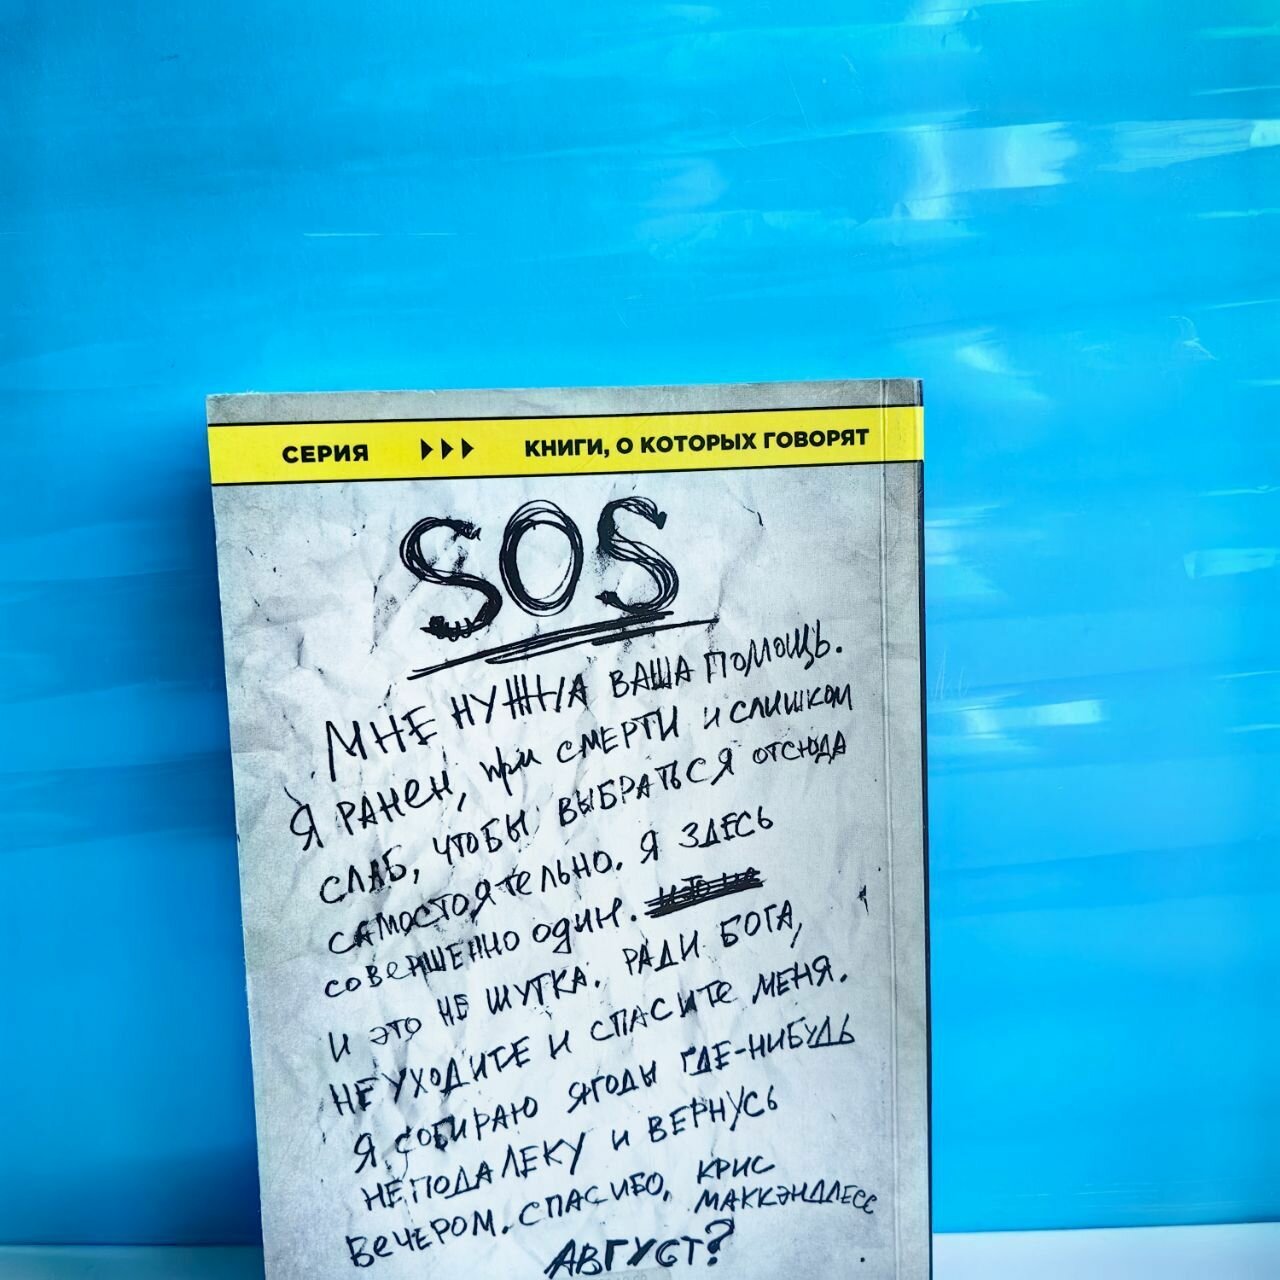 СЕРИЯ КНИГИ, О КОТОРЫХ ГОВОРЯТ
SOS
МНЕ НУЖНА ВАША ПОМОЩЬ.
Я РАНЕН, ПРИ СМЕРТИ И СЛИШКОМ
СЛАБ, ЧТОБЫ ВЫБРАТЬСЯ ОТСЮДА
САМОСТОЯТЕЛЬНО. Я ЗДЕСЬ
СОВЕРШЕННО ОДИН.
И ЭТО НЕ ШУТКА. РАДИ БОГА,
НЕ УХОДИТЕ И СПАСИТЕ МЕНЯ.
Я СОБИРАЮ ЯГОДЫ ГДЕ-НИБУДЬ
НЕПОДАЛЕКУ И ВЕРНУСЬ
ВЕЧЕРОМ. СПАСИБО, КРИС
МАККЭНДЛЕСС
АВГУСТ?